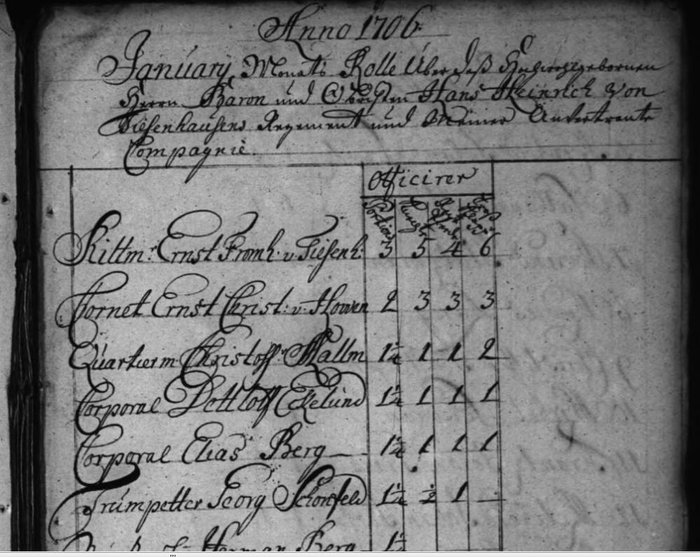 Anno 1706.
January Monats Rolle Über deß Hochwohlgebornen
Herrn Baron und Obersten Hans Heinrich Von
Tiesenhausens Regement und Meiner Anvertraute
Compagnie.
Officirer
Portion
Rittm: Ernst Fromh. v. Tiesenh: 3 5 4 6
Cornet Ernst Christ: v: Howen 2 3 3 3
Quartierm Christoff Mallm 1½ 1 1 2
Corporal Dettloff Ekelund 1½ 1 1 1
Corporal Elias Berg 1½ 1 1 1
Trumpetter Georg Schönfeld 1½ ½ 1 —
Herman Berg 1½